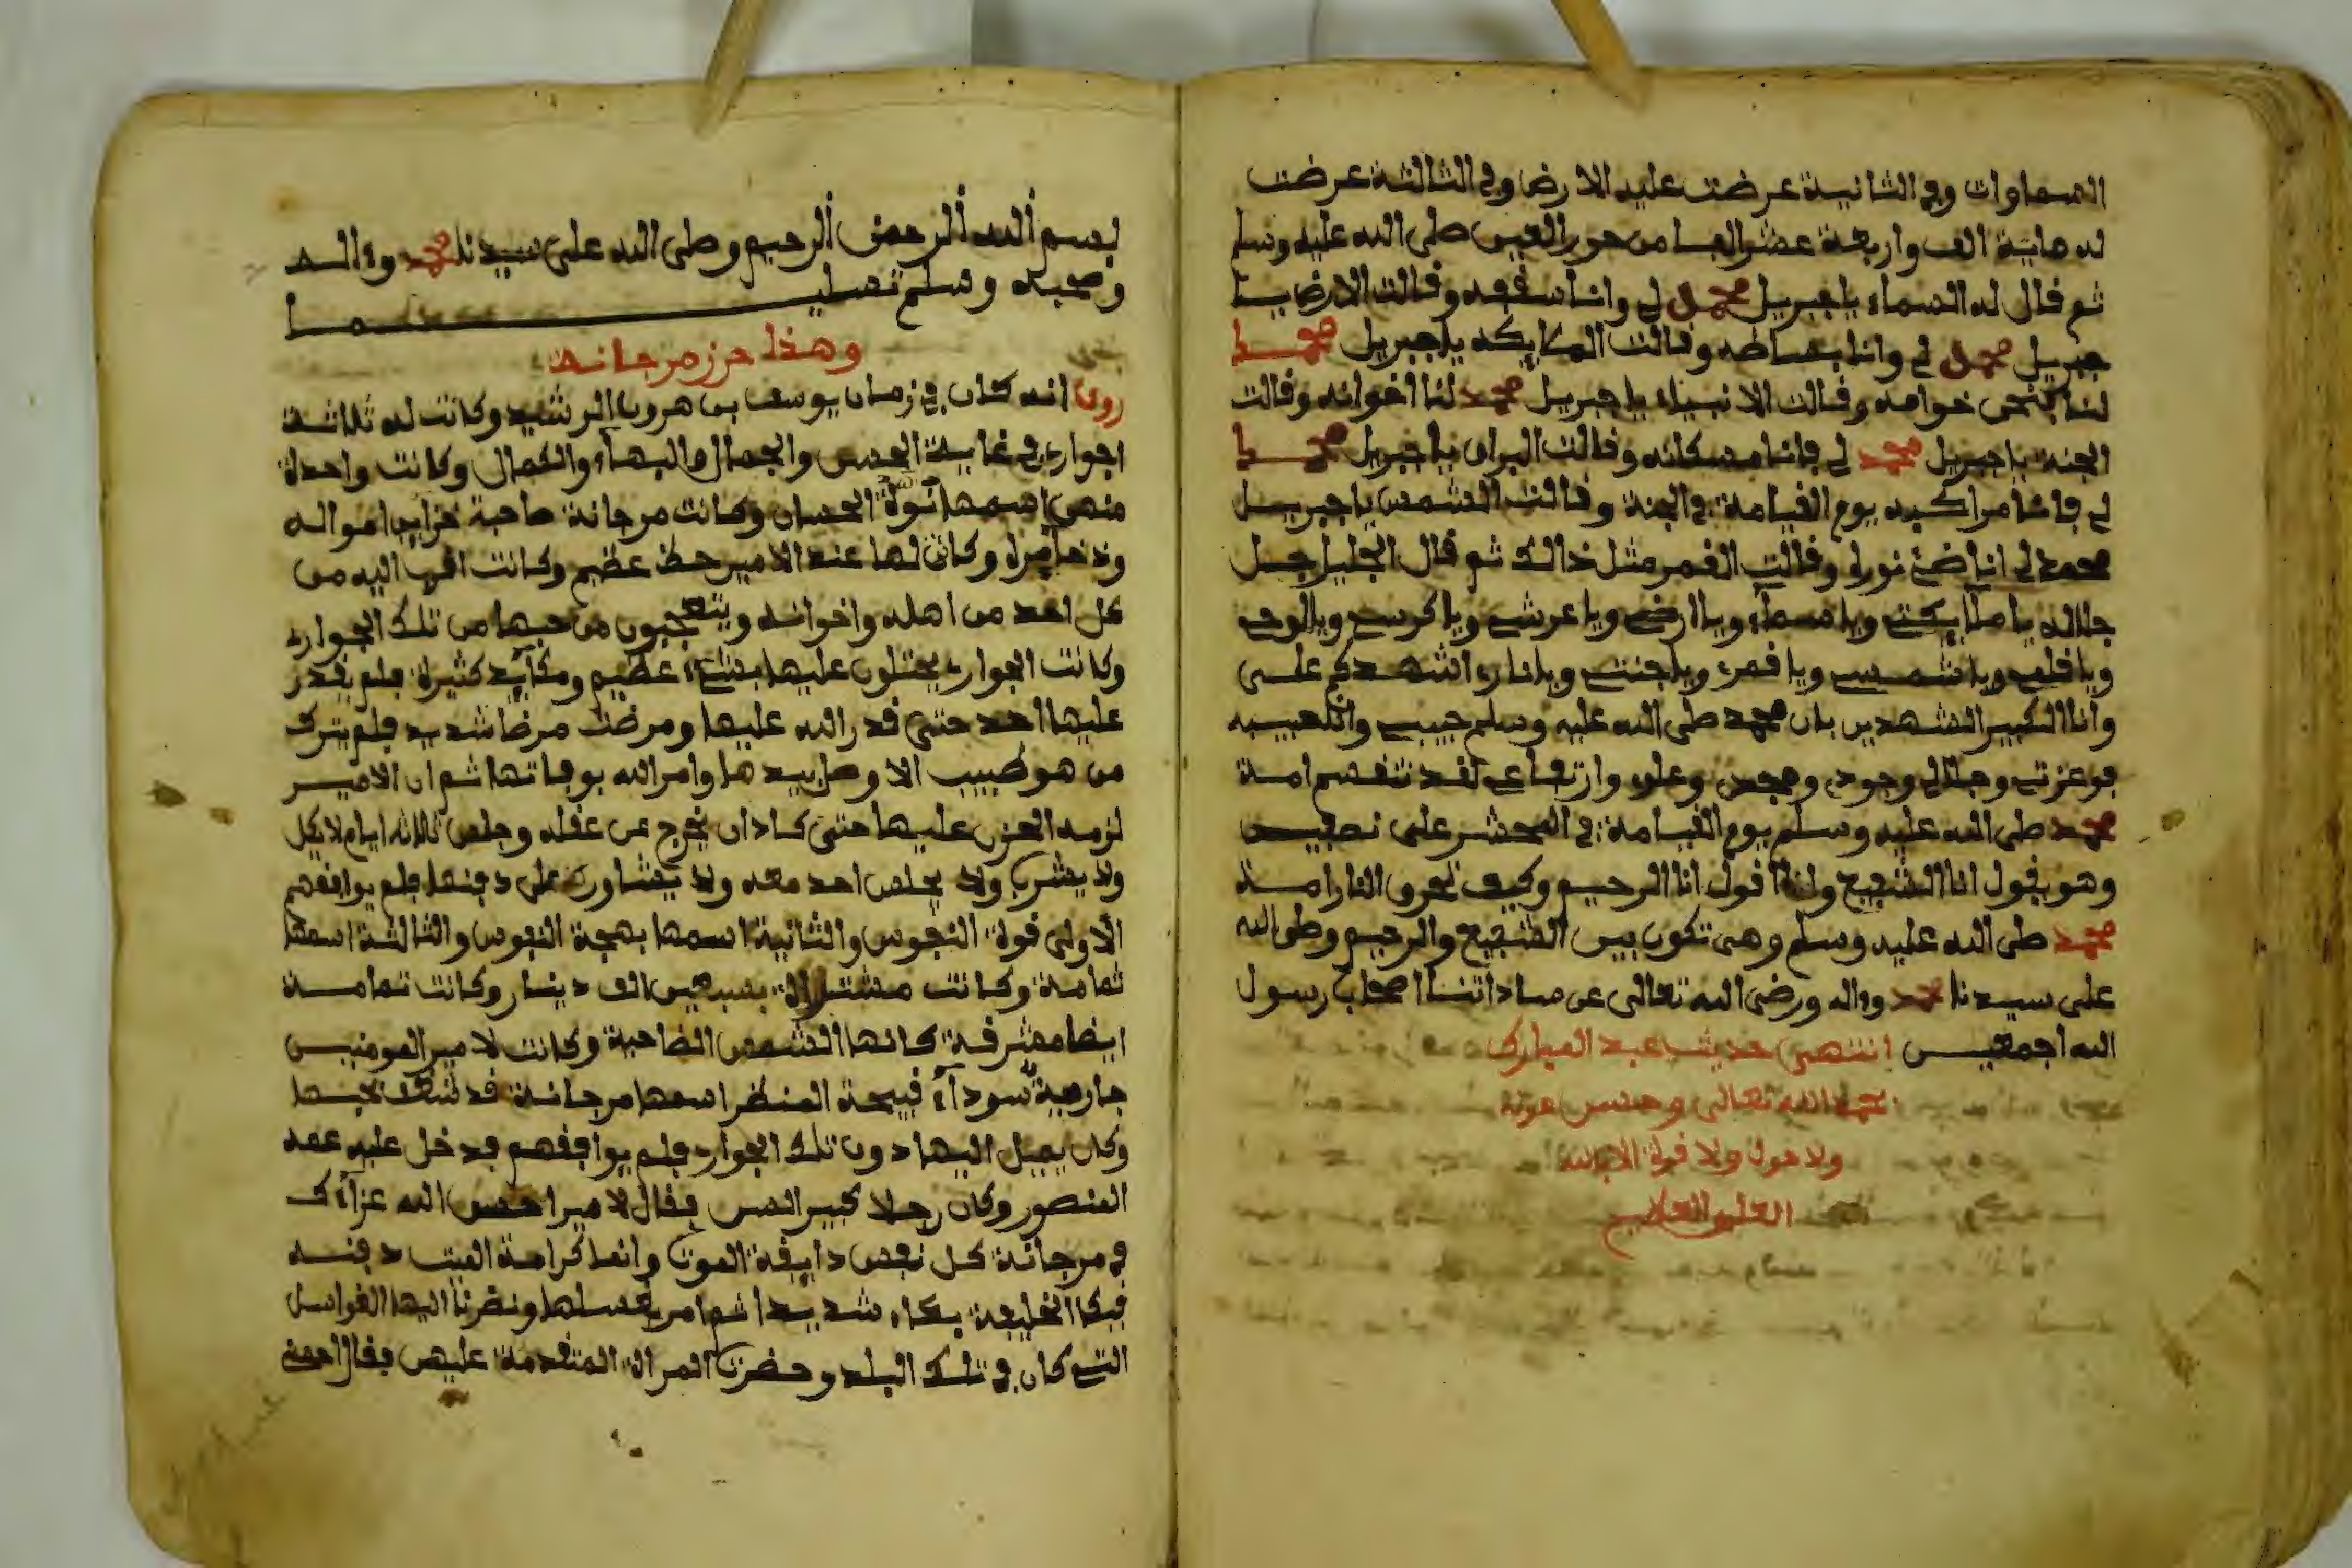 السماوات وفي الثانية عرضت عليه الارض وفي الثالثة عرضت
له ماية الف واربعة عشر الفا من حور العين صلى الله عليه وسلم
ثم قال له السماء يا جبريل محمد لي وانا سقفه وقالت الارض يا
جبريل محمد لي وانا بساطه وقالت الملايكة يا جبريل محمد
لنا نحن خدامه وقالت الانبياء يا جبريل محمد لنا اخوانه وقالت
الجنة يا جبريل محمد لي فانا مسكانه وقالت البراق يا جبريل محمد يا
لي فانا مراكبه يوم القيامة في الجنة وقالت الشمس يا جبريل
محمد لي انا ضئ نوره وقالت القمر مثل ذالك ثم قال الجليل جل
جلاله يا ملايكتي ويا سماء ويا ارضي ويا عرشي ويا كرسي ويا لوحي
ويا قلمي ويا شمسي ويا قمري ويا جنتي ويا ناري اشهدكم على
وانا الكبير الشهدين بان محمد صلى الله عليه وسلم حبيبي وانا حبيبه
فوعزتي وجلالي وجودي ومجدي وعلوي وارتفاعي لقد تنقسم امة
محمد صلى الله عليه وسلم يوم القيامة في المحشر على نصفين
وهو يقول انا الشفيع وانا اقول انا الرحيم وكيف تحرق النار امة
محمد صلى الله عليه وسلم وهي تكون بين الشفيع والرحيم وصلى الله
على سيدنا محمد وءاله ورضى الله تعالى عن ساداتنا اصحاب رسول
الله اجمعين انتهى حديث عبد المبارك
بحمد الله تعالى وحسن عونه
ولا حول ولا قوة الا بالله
العلي العظيم
بسم الله الرحمن الرحيم وصلى الله على سيدنا محمد وءاله
وصحبه وسلم تسليما
وهذا حرز مرجانة
روي انه كان في زمان يوسف بن هرون الرشيد وكانت له ثلاثة
اجوار في غاية الحسن والجمال والبهاء والكمال وكانت واحدة
منهن اسمها الحسان وكانت مرجانة صاحبة خزاين امواله
وذخايره وكان لها عند الامير حظ عظيم وكانت اقرب اليه من
كل احد من اهله واخوانه ويتعجبون من حبها من تلك الجوار
وكانت الجوار يحتلون عليها بشئ عظيم ومكايد كثيرة فلم يقدر
عليها احد حتى قدر الله عليها ومرضت مرضا شديد فلم يترك
من هو طبيب الا وصل بيدها وامر الله بوفاتها ثم ان الامير
لزمه الحزن عليها حتى كاد ان يخرج عن عقله وجلس ثلاثة ايام لا يكل
ولا يشرب ولا يجلس احد معه ولا يشاور على دفنها فلم يوافقهم
الاولى قوة النفوس والثانية اسمها بهجة النفوس والثالثة اسمها
تمامة وكانت مشتراة بسبعين الف دينار وكانت تمامة
ايضا مشرفة كانها الشمس الضاحية وكانت لامير المومنين
جارية سوداء قبيحة المنظر اسمها مرجانة قد شغف بحبها
وكان يميل اليها دون تلك الجوار فلم يوافقهم فدخل عليه عمه
المنصور وكان رجلا كبير السن فقال لامير احسن الله عزاءك
في مرجانة كل نفس ذايقة الموت وانما كرامة الميت دفنه
فبكا الخليفة بكاء شديدا ثم امر بغسلها ونظرنا اليها الغواسل
التي كان في تلك البلد وحضرت المراة المتقدمة عليهن فقال